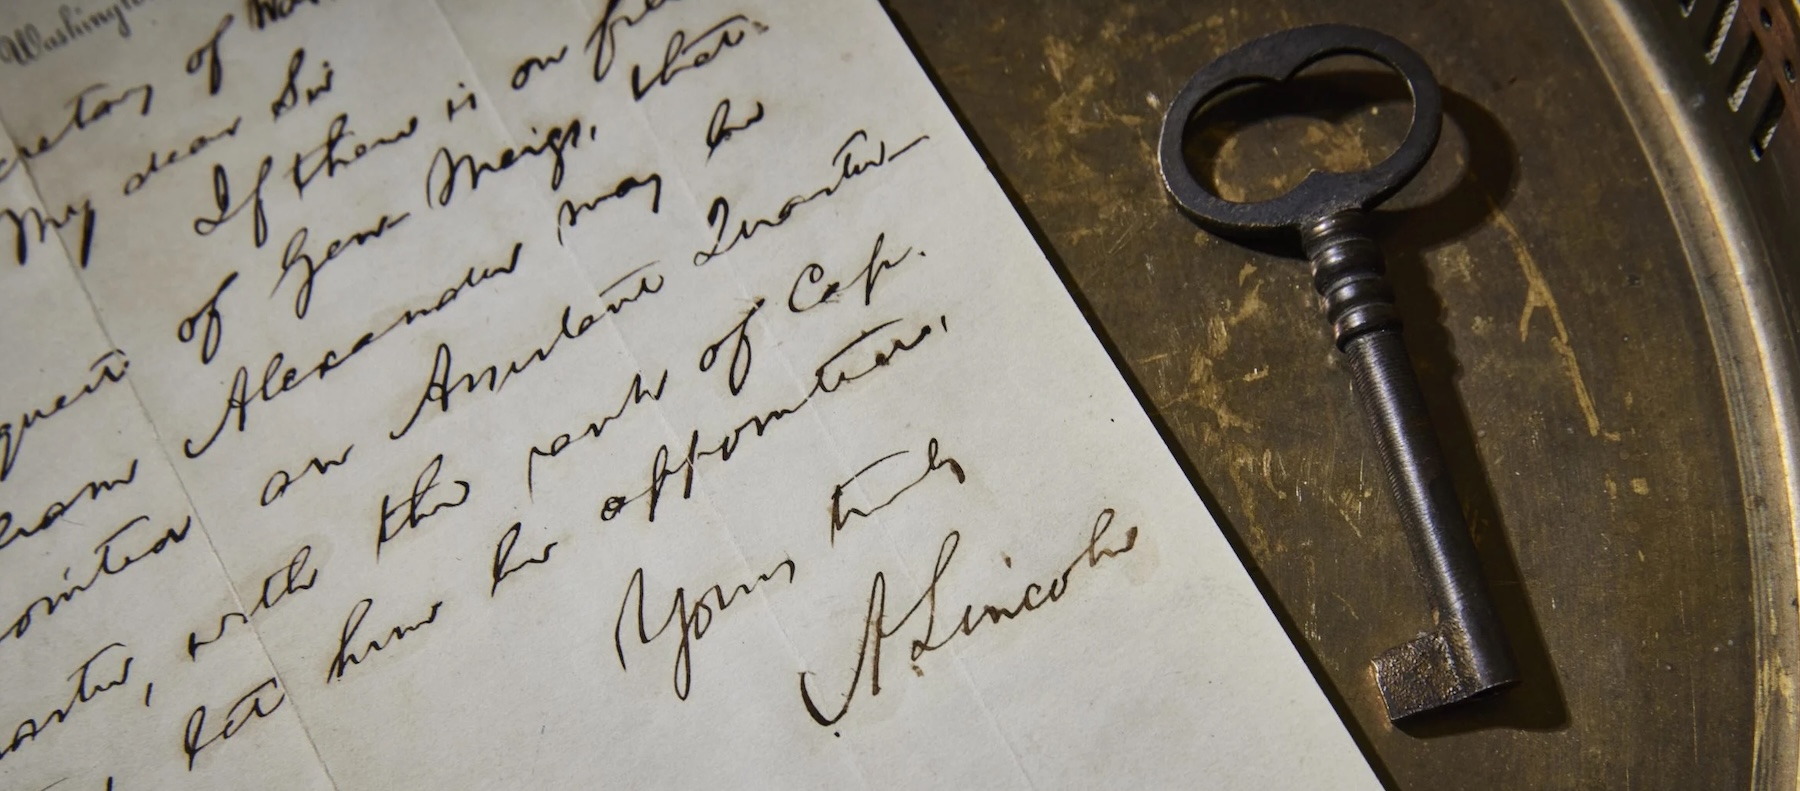 Washingto
cretary of War
My dear Sir
If there is on file
quest of Gen. Meigs, that
liam Alexander may be
ointed an Assistant Quarter-
aster, with the rank of Cap.
let him be appointed.
Yours truly
A. Lincoln